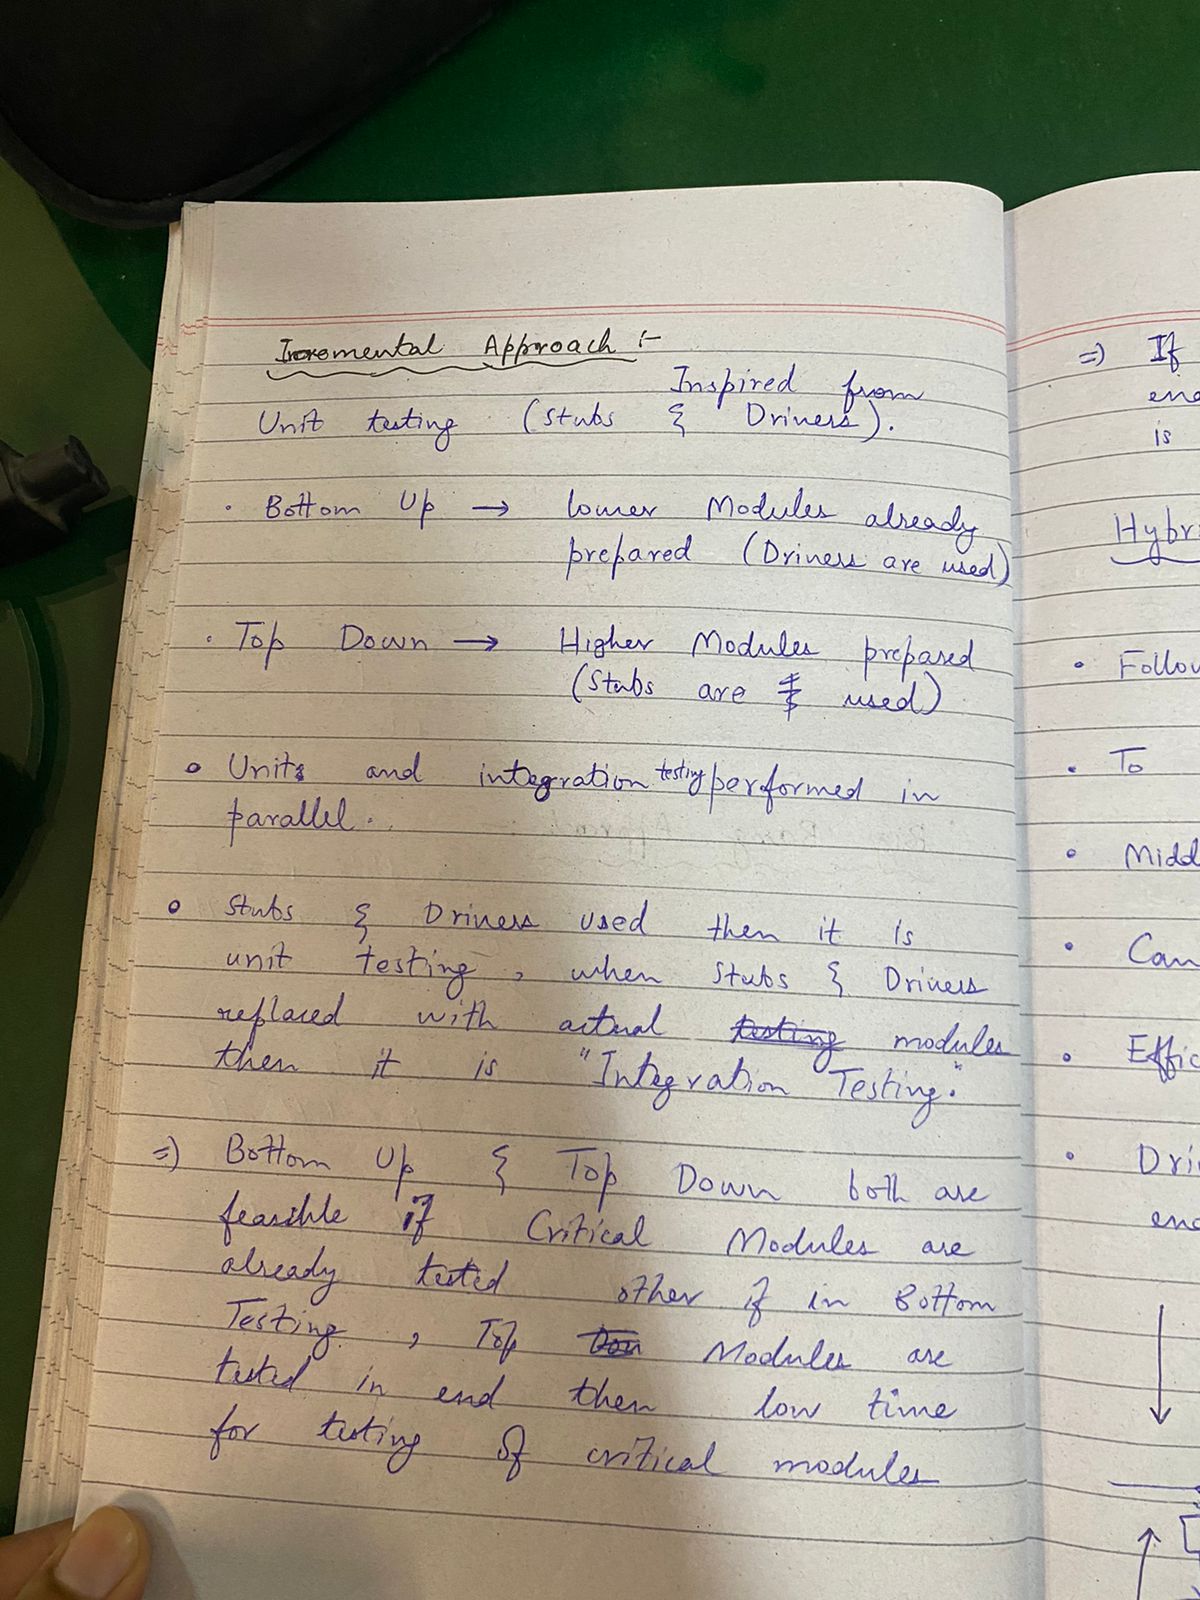 Incremental Approach :-
Inspired from
Unit testing (Stubs & Drivers).
• Bottom Up → lower Modules already
prepared (Drivers are used)
• Top Down → Higher Modules prepared
(Stubs are used)
• Units and integration testing performed in
parallel.
• Stubs & Drivers used then it is
unit testing, when Stubs & Drivers
replaced with actual testing modules
then it is "Integration Testing."
=) Bottom Up & Top Down both are
feasible if Critical Modules are
already tested other if in Bottom
Testing, Top Modules are
tested in end then low time
for testing of critical modules
=) If
is
Hybri
• Follow
• To
• Midd
• Can
• Effic
• Dri